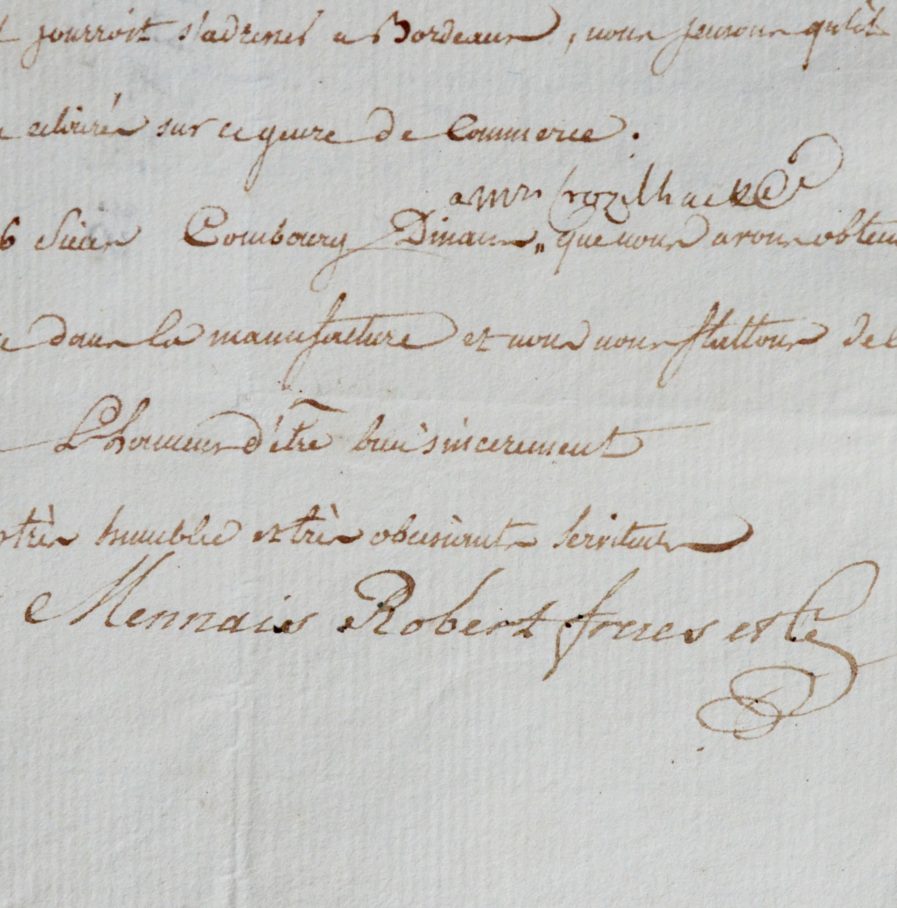 pourroit s'adresser a Bordeaux, nous pensons qu'il
sur ce genre de Commerce.
a Mrs Crozilhac & Ce
6 Combourg Dinan " que nous avons obtenu
dans la manufacture et nous nous flattons de
L'honneur d'être bien sincerement
très humbles et très obeissants serviteurs
Mennais Robert freres et Ce